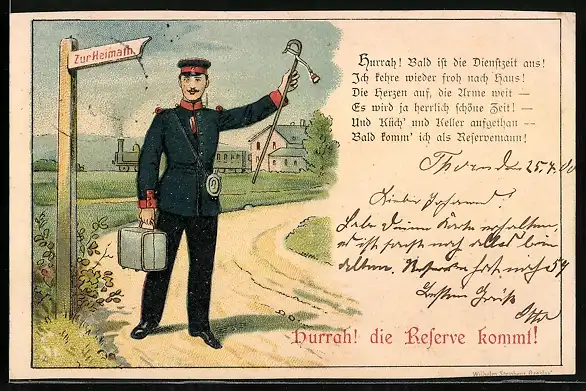 Zur Heimath.
Hurrah! Bald ist die Dienstzeit aus!
Ich kehre wieder froh nach Haus!
Die Herzen auf, die Arme weit —
Es wird ja herrlich schöne Zeit! —
Und Küch' und Keller aufgethan —
Bald komm' ich als Reservemann!
25.7.00
Lieber Johannes!
Habe Deine Karte erhalten,
ist noch alles beim
alten.
Besten Gruß
Otto
Hurrah! die Reserve kommt!
Wilhelm